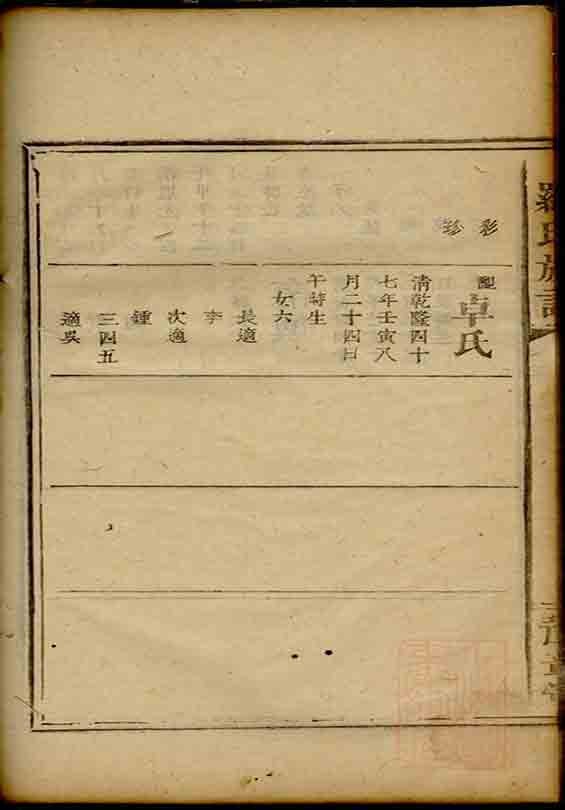 羅氏族譜
彩
配卓氏
清乾隆四十
七年壬寅八
月二十四日
午時生
女六
長適
李
次適
鍾
三四五
適吳